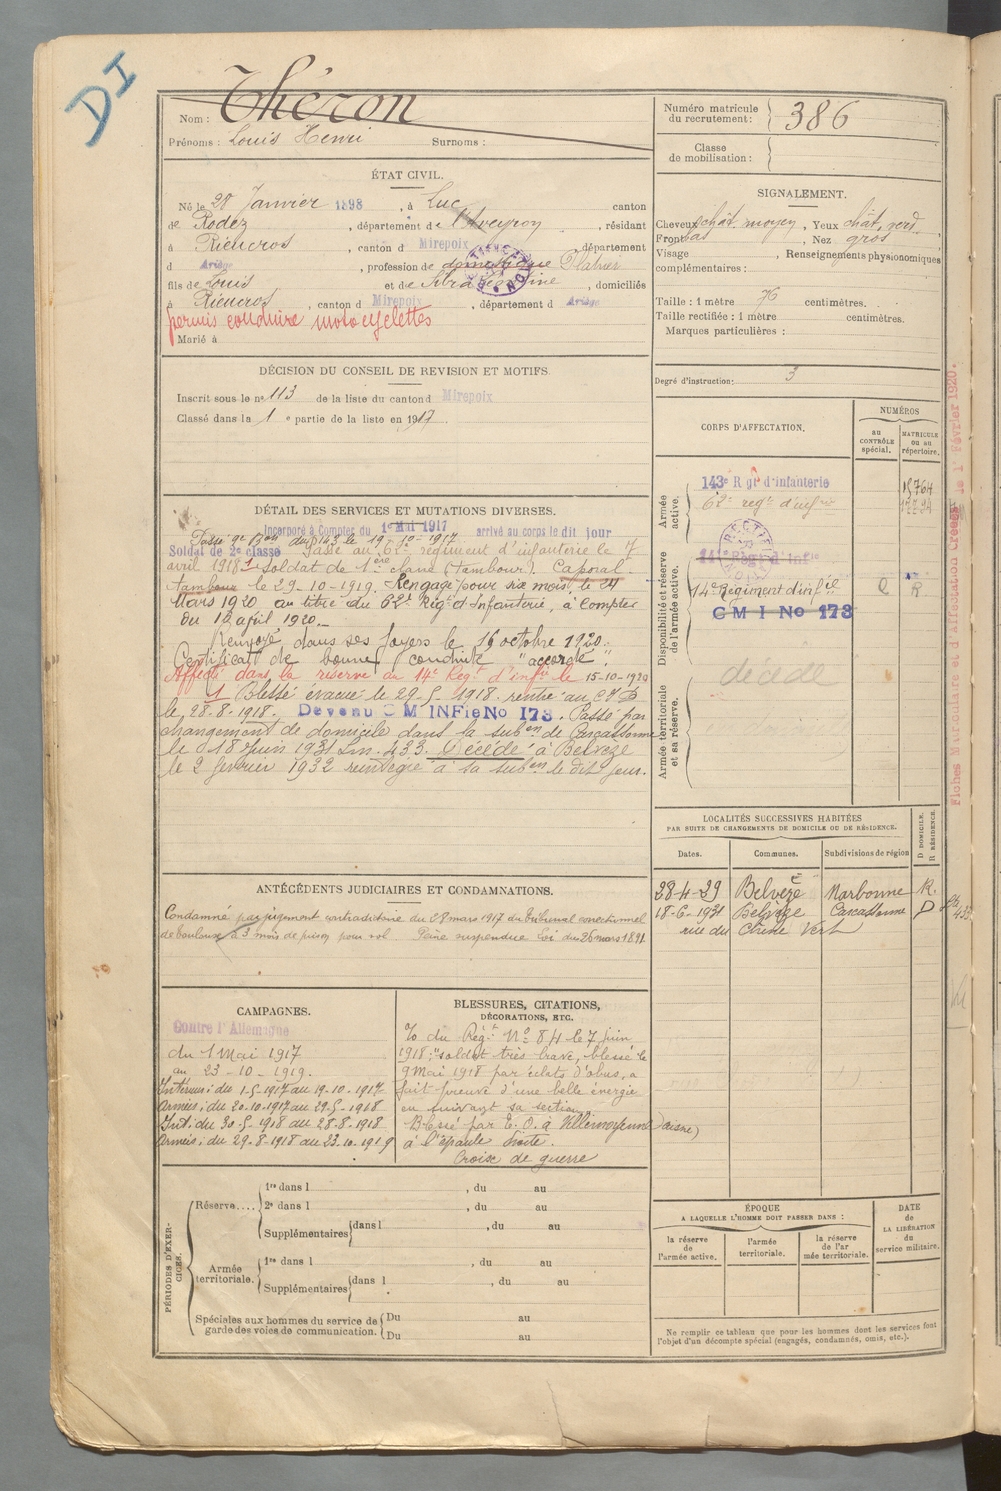 DI
Nom : Théron
Prénoms : Louis Henri Surnoms :
Numéro matricule du recrutement : 386
Classe de mobilisation :
ÉTAT CIVIL.
Né le 28 Janvier 1898, à Luc canton
de Rodez, département de l'Aveyron, résidant
à Rieucros, canton d Mirepoix, département
d Ariège, profession de domestique Platrier
fils de Louis et de domiciliés
à Rieucros, canton d Mirepoix, département d Ariège
permis conduire motocyclettes
Marié à
SIGNALEMENT.
Cheveux chât. moyen, Yeux chât. verd
Front bas, Nez gros
Visage , Renseignements physionomiques
complémentaires :
Taille : 1 mètre 76 centimètres.
Taille rectifiée : 1 mètre centimètres.
Marques particulières :
Degré d'instruction : 3
DÉCISION DU CONSEIL DE REVISION ET MOTIFS.
Inscrit sous le n° 113 de la liste du canton d Mirepoix
Classé dans la 1 e partie de la liste en 1917.
DÉTAIL DES SERVICES ET MUTATIONS DIVERSES.
Incorporé à Compter du 1er Mai 1917 arrivé au corps le dit jour
Passé 9e Bon du 143 le 19-10-1917
Soldat de 2e classe Passé au 62e régiment d'infanterie le 7
avril 1918. 1 Soldat de 1ère classe (tambour). Caporal
tambour le 29-10-1919. Rengagé pour six mois le 24
Mars 1920 au titre du 62e Régt d'Infanterie, à compter
du 12 april 1920.
Renvoyé dans ses foyers le 16 octobre 1920.
Certificat de bonne conduite "accordé".
Affecté dans la réserve au 14e Régt d'infie le 15-10-1920
1 Blessé évacué le 29-5-1918 rentré au
le 28-8-1918. Devenu C M INFie No 173. Passé par
changement de domicile dans la subon de Carcassonne
le 18 juin 1931 Lm. 433. Décédé à Belvèze
le 2 février 1932 réintégré à sa subon le dit jour.
CORPS D'AFFECTATION.
NUMÉROS
au CONTRÔLE spécial.
MATRICULE ou au répertoire.
Armée active.
143e Rgt d'infanterie 15764
62e régt d'infrie
Disponibilité et réserve de l'armée active.
RECTIFICATION
141e Régt d'infie
14e Régiment d'infie R
C M I No 173
Armée territoriale et sa réserve.
décédé
Fiches Matriculaire et d'Affectation Créées le 1er Février 1920.
LOCALITÉS SUCCESSIVES HABITÉES
PAR SUITE DE CHANGEMENTS DE DOMICILE OU DE RÉSIDENCE.
Dates. Communes. Subdivisions de région D DOMICILE. R RÉSIDENCE.
28-4-29 Belvèze Narbonne R.
18-6-1931 Belvèze Carcassonne D
rue du Chêne Vert
ANTÉCÉDENTS JUDICIAIRES ET CONDAMNATIONS.
Condamné par jugement contradictoire du 28 mars 1917 du tribunal correctionnel
de Toulouse à 3 mois de prison pour vol Peine suspendue Loi du 26 mars 1891
CAMPAGNES.
Contre l'Allemagne
du 1 Mai 1917
au 23-10-1919.
Intérieur : du 1-5-1917 au 19-10-1917
Armées : du 20-10-1917 au 29-5-1918
Int. : du 30-5-1918 au 28-8-1918
Armées : du 29-8-1918 au 23-10-1919
BLESSURES, CITATIONS,
DÉCORATIONS, ETC.
% du Régt No 84 le 7 juin
1918 : "soldat très brave, blessé le
9 mai 1918 par éclats d'obus, a
fait preuve d'une belle énergie
en suivant sa section
Blessé par E. O. à Villemoyenne (aisne)
à l'épaule droite.
Croix de guerre
PÉRIODES D'EXERCICES.
Réserve....
1re dans l , du au
2e dans l , du au
Supplémentaires dans l , du au
Armée territoriale.
1re dans l , du au
Supplémentaires dans l , du au
Spéciales aux hommes du service de garde des voies de communication.
Du au
Du au
ÉPOQUE
A LAQUELLE L'HOMME DOIT PASSER DANS :
la réserve de l'armée active.
l'armée territoriale.
la réserve de l'armée territoriale.
DATE de LA LIBÉRATION du service militaire.
Ne remplir ce tableau que pour les hommes dont les services font
l'objet d'un décompte spécial (engagés, condamnés, omis, etc.).